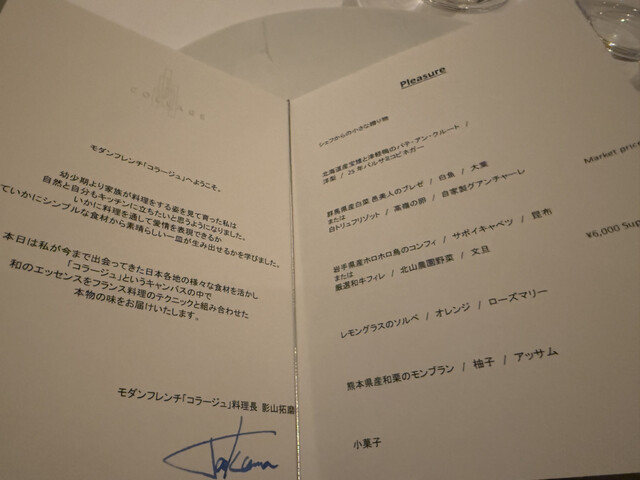 COLLAGE
モダンフレンチ「コラージュ」へようこそ。
幼少期より家族が料理をする姿を見て育った私は
自然と自分もキッチンに立ちたいと思うようになりました。
いかに料理を通して愛情を表現できるか
ていかにシンプルな食材から素晴らしい一皿が生み出せるかを学びました。
本日は私が今まで出会ってきた日本各地の様々な食材を活かし
「コラージュ」というキャンバスの中で
和のエッセンスをフランス料理のテクニックと組み合わせた
本物の味をお届けいたします。
モダンフレンチ「コラージュ」料理長 影山拓磨
Pleasure
シェフからの小さな贈り物
北海道産宝種と津軽鴨のパテ・アン・クルート /
洋梨 / 25 年バルサミコビネガー
群馬県産白菜 邑美人のブレゼ / 白魚 / 大葉
または
白トリュフリゾット / 高機の卵 / 自家製グアンチャーレ
Market price
岩手県産ホロホロ鳥のコンフィ / サボイキャベツ / 昆布
または
厳選和牛フィレ / 北山農園野菜 / 文旦
¥6,000 Sup
レモングラスのソルベ / オレンジ / ローズマリー
熊本県産和栗のモンブラン / 柚子 / アッサム
小菓子